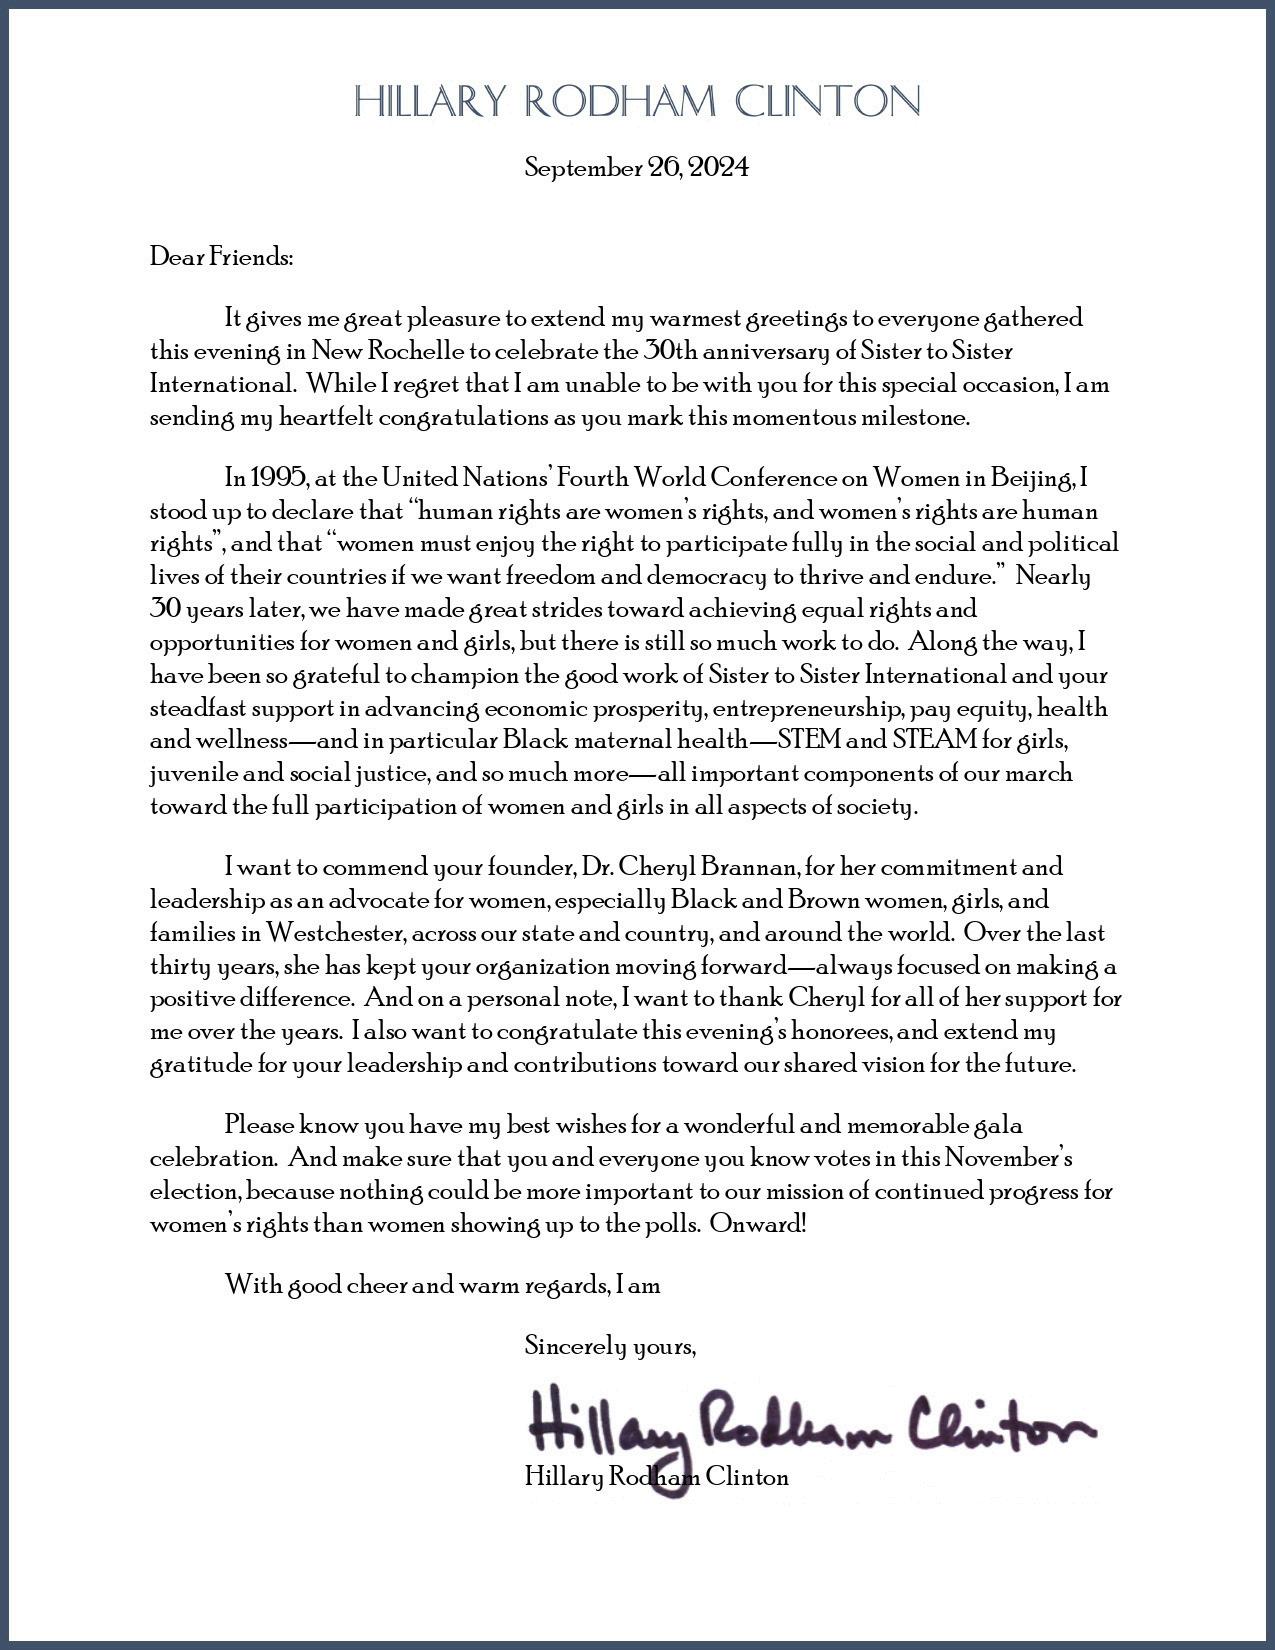 HILLARY RODHAM CLINTON
September 26, 2024
Dear Friends:
It gives me great pleasure to extend my warmest greetings to everyone gathered
this evening in New Rochelle to celebrate the 30th anniversary of Sister to Sister
International.  While I regret that I am unable to be with you for this special occasion, I am
sending my heartfelt congratulations as you mark this momentous milestone.
In 1995, at the United Nations’ Fourth World Conference on Women in Beijing, I
stood up to declare that “human rights are women’s rights, and women’s rights are human
rights”, and that “women must enjoy the right to participate fully in the social and political
lives of their countries if we want freedom and democracy to thrive and endure.”  Nearly
30 years later, we have made great strides toward achieving equal rights and
opportunities for women and girls, but there is still so much work to do.  Along the way, I
have been so grateful to champion the good work of Sister to Sister International and your
steadfast support in advancing economic prosperity, entrepreneurship, pay equity, health
and wellness—and in particular Black maternal health—STEM and STEAM for girls,
juvenile and social justice, and so much more—all important components of our march
toward the full participation of women and girls in all aspects of society.
I want to commend your founder, Dr. Cheryl Brannan, for her commitment and
leadership as an advocate for women, especially Black and Brown women, girls, and
families in Westchester, across our state and country, and around the world.  Over the last
thirty years, she has kept your organization moving forward—always focused on making a
positive difference.  And on a personal note, I want to thank Cheryl for all of her support for
me over the years.  I also want to congratulate this evening’s honorees, and extend my
gratitude for your leadership and contributions toward our shared vision for the future.
Please know you have my best wishes for a wonderful and memorable gala
celebration.  And make sure that you and everyone you know votes in this November’s
election, because nothing could be more important to our mission of continued progress for
women’s rights than women showing up to the polls.  Onward!
With good cheer and warm regards, I am
Sincerely yours,
Hillary Rodham Clinton
Hillary Rodham Clinton